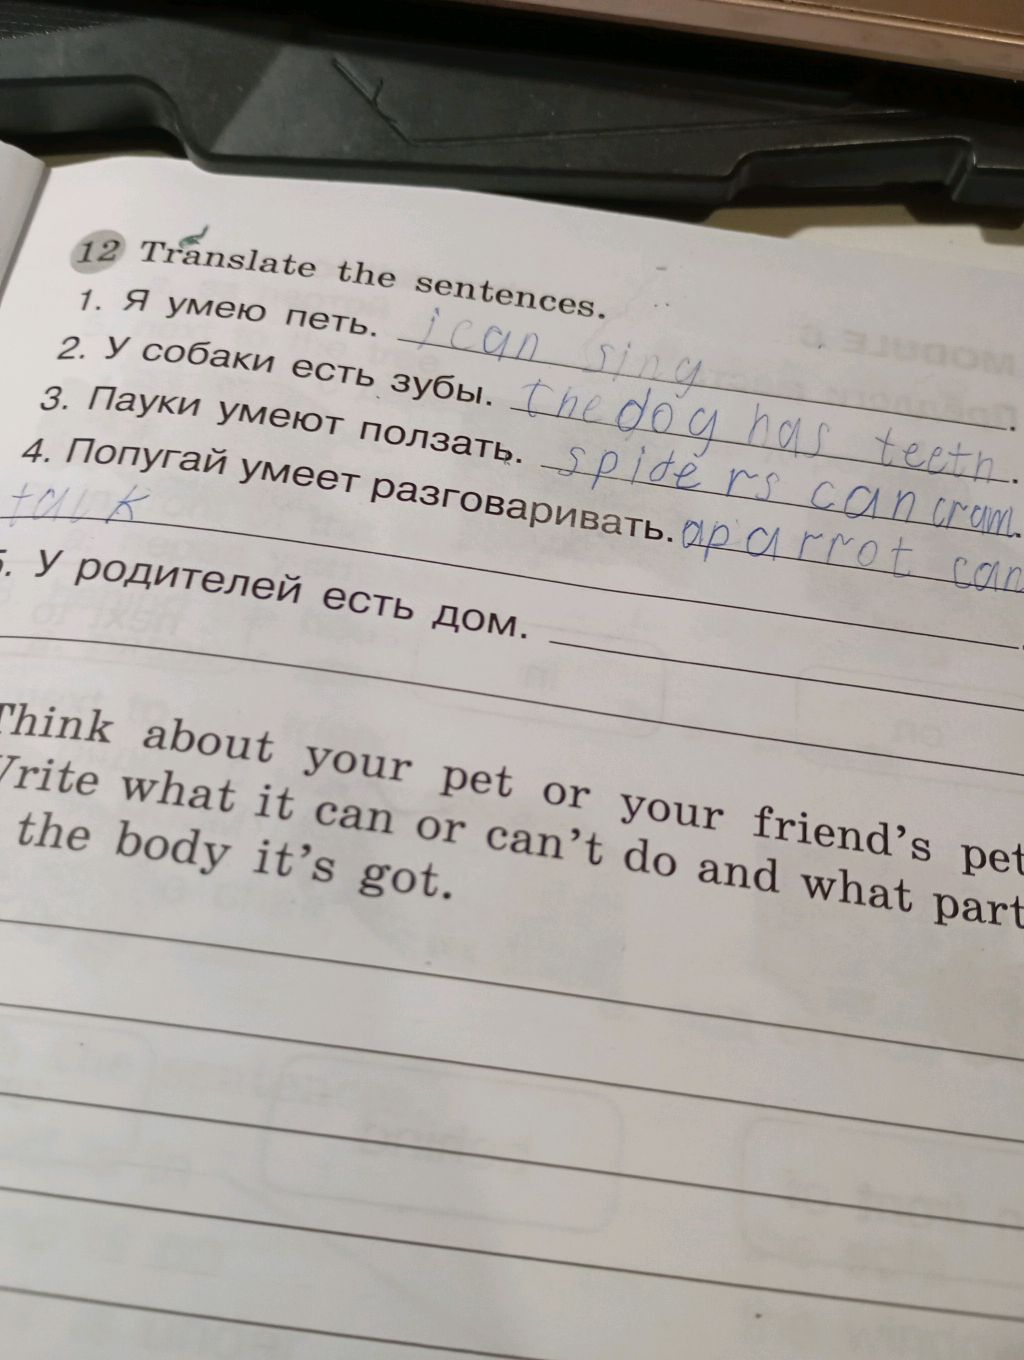 12 Translate the sentences.
1. Я умею петь. i can sing.
2. У собаки есть зубы. the dog has teeth.
3. Пауки умеют ползать. spiders can cram.
4. Попугай умеет разговаривать. a parrot can
talk
5. У родителей есть дом.
Think about your pet or your friend's pet
Write what it can or can't do and what part
the body it's got.